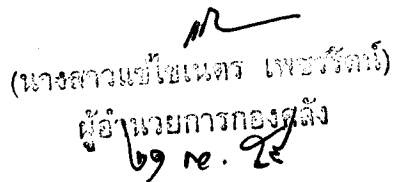 (นางสาวแขไขเนตร เพชรรัตน์)
ผู้อำนวยการกองคลัง
๒๑ กย. ๖๕